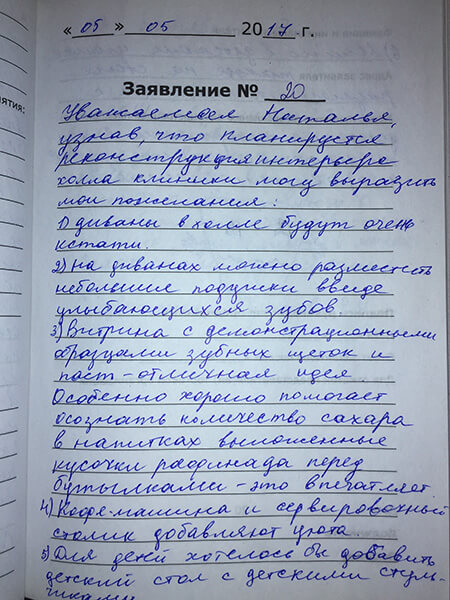 « 05 » 05 2017 г.
Заявление № 20
Уважаемая Наталья,
узнав, что планируется
реконструкция интерьера
холла клиники могу выразить
мои пожелания:
1) диваны в холле будут очень
кстати.
2) на диванах можно разместить
небольшие подушки ввиде
улыбающихся зубов.
3) Витрина с демонстрационными
образцами зубных щеток и
паст - отличная идея
Особенно хорошо помогает
осознать количество сахара
в напитках выложенные
кусочки рафинада перед
бутылками - это впечатляет.
4) Кофемашина и сервировочный
столик добавляют уюта
5) Для детей хотелось бы добавить
детский стол с детскими стуль-
чиками